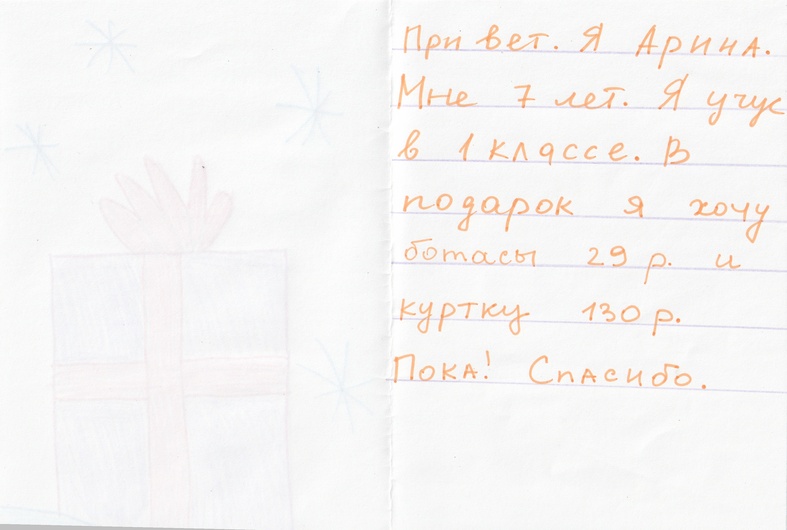 Привет. Я Арина.
Мне 7 лет. Я учус
в 1 классе. В
подарок я хочу
ботасы 29 р. и
куртку 130 р.
Пока! Спасибо.